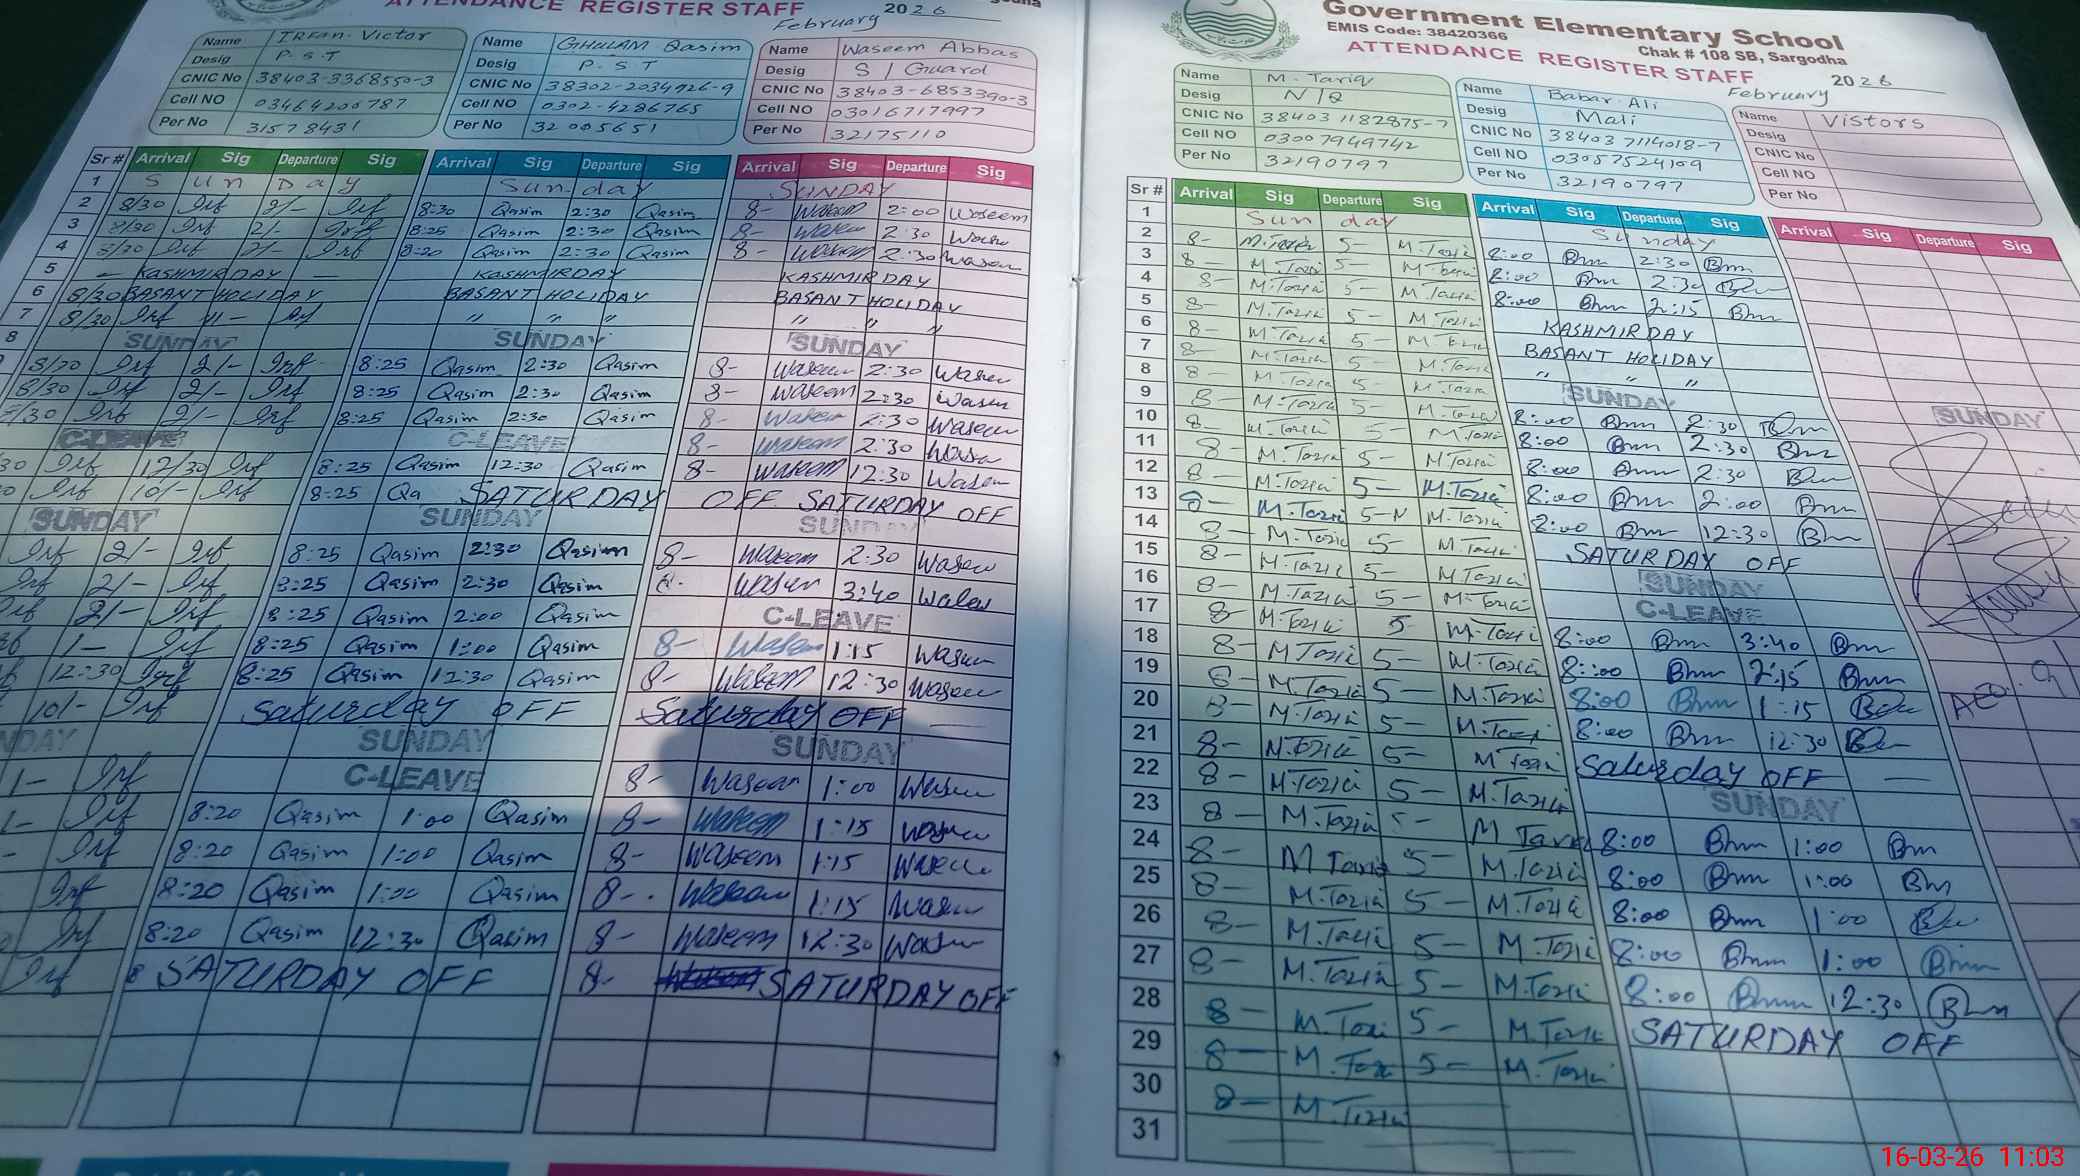 ATTENDANCE REGISTER STAFF
February 2026
Name IRFan Victor
Desig P.S.T
CNIC No 38403-3368550-3
Cell NO 03464200787
Per No 31578431
Name GHULAM Qasim
Desig P.S.T
CNIC No 38302-2034926-9
Cell NO 0302-4286765
Per No 32005651
Name Waseem Abbas
Desig S/Guard
CNIC No 38403-6853390-3
Cell NO 03016717997
Per No 32175110
Sr # Arrival Sig Departure Sig Arrival Sig Departure Sig Arrival Sig Departure Sig
1 Sunday Sunday SUNDAY
2 8/30 Irf 2/- Irf 8:30 Qasim 2:30 Qasim 8- Waseem 2:00 Waseem
3 8/30 Irf 2/- Irf 8:25 Qasim 2:30 Qasim 8- Waseem 2:30
4 8/30 Irf 2/- Irf 8:20 Qasim 2:30 Qasim 8- Waseem 2:30 Waseem
5 - KASHMIR DAY - KASHMIR DAY KASHMIR DAY
6 8/30 BASANT HOLIDAY BASANT HOLIDAY BASANT HOLIDAY
7 8/30 Irf Irf " " " " " "
8 SUNDAY SUNDAY SUNDAY
8/30 Irf 2/- Irf 8:25 Qasim 2:30 Qasim 8- Waseem 2:30 Waseem
8/30 Irf 2/- Irf 8:25 Qasim 2:30 Qasim 8- Waseem 2:30 Waseem
/30 Irf 2/- Irf 8:25 Qasim 2:30 Qasim 8- Waseem 2:30 Waseem
C-LEAVE C-LEAVE 8- Waseem 2:30
30 Irf 12/30 Irf 8:25 Qasim 12:30 Qasim 8- Waseem 12:30 Waseem
Irf 10/- Irf 8:25 Qa SATURDAY OFF SATURDAY OFF
SUNDAY SUNDAY SUNDAY
Irf 2/- Irf 8:25 Qasim 2:30 Qasim 8- Waseem 2:30 Waseem
Irf 2/- Irf 8:25 Qasim 2:30 Qasim 8- Waseem 3:40
Irf 2/- Irf 8:25 Qasim 2:00 Qasim C-LEAVE
1- Irf 8:25 Qasim 1:00 Qasim 8- Waseem 1:15 Waseem
12:30 Irf 8:25 Qasim 12:30 Qasim 8- Waseem 12:30 Waseem
10/- Irf Saturday OFF Saturday OFF
NDAY SUNDAY SUNDAY
1- Irf C-LEAVE 8- Waseem 1:00 Waseem
1- Irf 8:20 Qasim 1:00 Qasim 8- Waseem 1:15 Waseem
- Irf 8:20 Qasim 1:00 Qasim 8- Waseem 1:15 Waseem
Irf 8:20 Qasim 1:00 Qasim 8- Waseem 1:15 Waseem
Irf 8:20 Qasim 12:30 Qasim 8- Waseem 12:30 Waseem
Irf 8 SATURDAY OFF 8- SATURDAY OFF
Government Elementary School
EMIS Code: 38420366
Chak # 108 SB, Sargodha
ATTENDANCE REGISTER STAFF
February 2026
Name M. Tariq
Desig N/Q
CNIC No 38403 1182875-7
Cell NO 03007949742
Per No 32190797
Name Babar Ali
Desig Mali
CNIC No 38403 7114018-7
Cell NO 03057524109
Per No 32190797
Name Vistors
Desig
CNIC No
Cell NO
Per No
Sr # Arrival Sig Departure Sig Arrival Sig Departure Sig Arrival Sig Departure Sig
1 Sunday Sunday
2 8- M.Tariq 5- M.Tariq 8:00 Bm 2:30 Bm
3 8- M.Tariq 5- M.Tariq 8:00 Bm 2:30 Bm
4 8- M.Tariq 5- M.Tariq 8:00 Bm 2:15 Bm
5 8- M.Tariq 5- M.Tariq KASHMIR DAY
6 8- M.Tariq 5- M.Tariq BASANT HOLIDAY
7 8- M.Tariq 5- M.Tariq " " "
8 8- M.Tariq 5- M.Tariq SUNDAY SUNDAY
9 8- M.Tariq 5- M.Tariq 8:00 Bm 2:30 Bm
10 8- M.Tariq 5- M.Tariq 8:00 Bm 2:30 Bm
11 8- M.Tariq 5- M.Tariq 8:00 Bm 2:30 Bm
12 8- M.Tariq 5- M.Tariq 8:00 Bm 2:00 Bm
13 8- M.Tariq 5-N M.Tariq 8:00 Bm 12:30 Bm
14 8- M.Tariq 5- M.Tariq SATURDAY OFF
15 8- M.Tariq 5- M.Tariq SUNDAY
16 8- M.Tariq 5- M.Tariq C-LEAVE
17 8- M.Tariq 5- M.Tariq 8:00 Bm 3:40 Bm
18 8- M.Tariq 5- M.Tariq 8:00 Bm 2:15 Bm
19 8- M.Tariq 5- M.Tariq 8:00 Bm 1:15 Bm AEO
20 8- M.Tariq 5- M.Tariq 8:00 Bm 12:30 Bm
21 8- M.Tariq 5- M.Tariq Saturday OFF
22 8- M.Tariq 5- M.Tariq SUNDAY
23 8- M.Tariq 5- M.Tariq 8:00 Bm 1:00 Bm
24 8- M.Tariq 5- M.Tariq 8:00 Bm 1:00 Bm
25 8- M.Tariq 5- M.Tariq 8:00 Bm 1:00 Bm
26 8- M.Tariq 5- M.Tariq 8:00 Bm 1:00 Bm
27 8- M.Tariq 5- M.Tariq 8:00 Bm 12:30 Bm
28 8- M.Tariq 5- M.Tariq SATURDAY OFF
29 8- M.Tariq 5- M.Tariq
30 8- M.Tariq
31
16-03-26 11:03